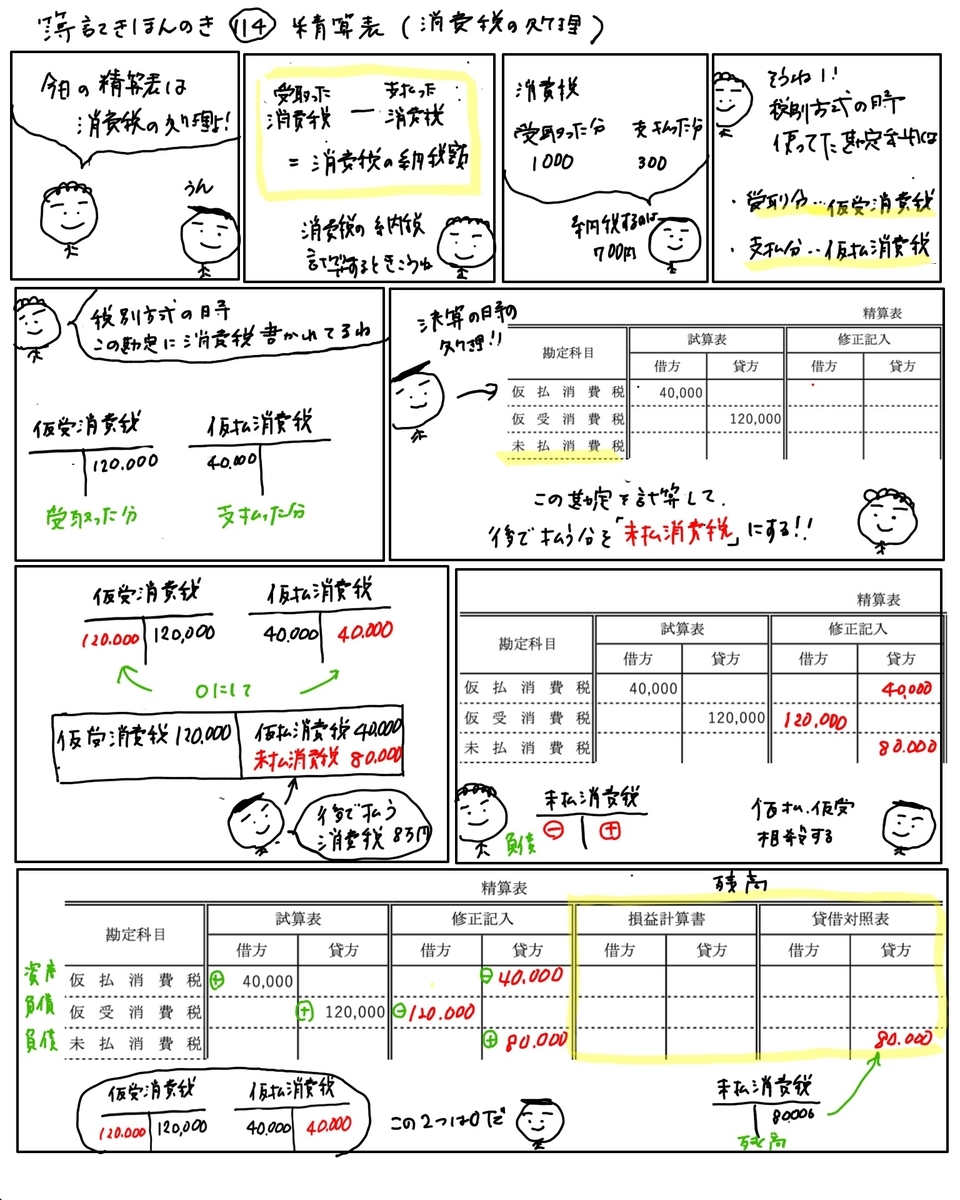 簿記きほんのき 114 精算表(消費税の処理)
今日の精算表は
消費税の処理よ!
うん
受取った 支払った
消費税 ー 消費税
=消費税の納税額
消費税の納税
計算するときこうね
消費税
受取った分 支払った分
1000 300
納税するのは
700円
そうね!!
税別方式の時
使ってた勘定科目は
・受取分…仮受消費税
・支払分…仮払消費税
税別方式の時
この勘定に消費税書かれてるわ
仮受消費税 仮払消費税
120.000 40.000
受取った分 支払った分
決算の時の
処理!!
精算表
勘定科目 試算表 修正記入
借方 貸方 借方 貸方
仮払消費税 40,000
仮受消費税 120,000
未払消費税
この勘定を計算して、
後で払う分を「未払消費税」にする!!
仮受消費税 仮払消費税
120.000 120,000 40.000 40.000
0にして
仮受消費税 120,000 仮払消費税 40.000
未払消費税 80.000
後で払う
消費税 8万円
精算表
勘定科目 試算表 修正記入
借方 貸方 借方 貸方
仮払消費税 40,000 40,000
仮受消費税 120,000 120,000
未払消費税 80.000
未払消費税
負債 ⊖ ⊕
仮払、仮受
相殺する
残高
精算表
勘定科目 試算表 修正記入 損益計算書 貸借対照表
借方 貸方 借方 貸方 借方 貸方 借方 貸方
資産 仮払消費税 ⊕ 40,000 ⊖ 40.000
負債 仮受消費税 ⊕ 120,000 ⊖ 120.000
負債 未払消費税 ⊕ 80.000 80.000
仮受消費税 仮払消費税
120.000 120,000 40.000 40.000
この2つは0だ
未払消費税
80.000
残高